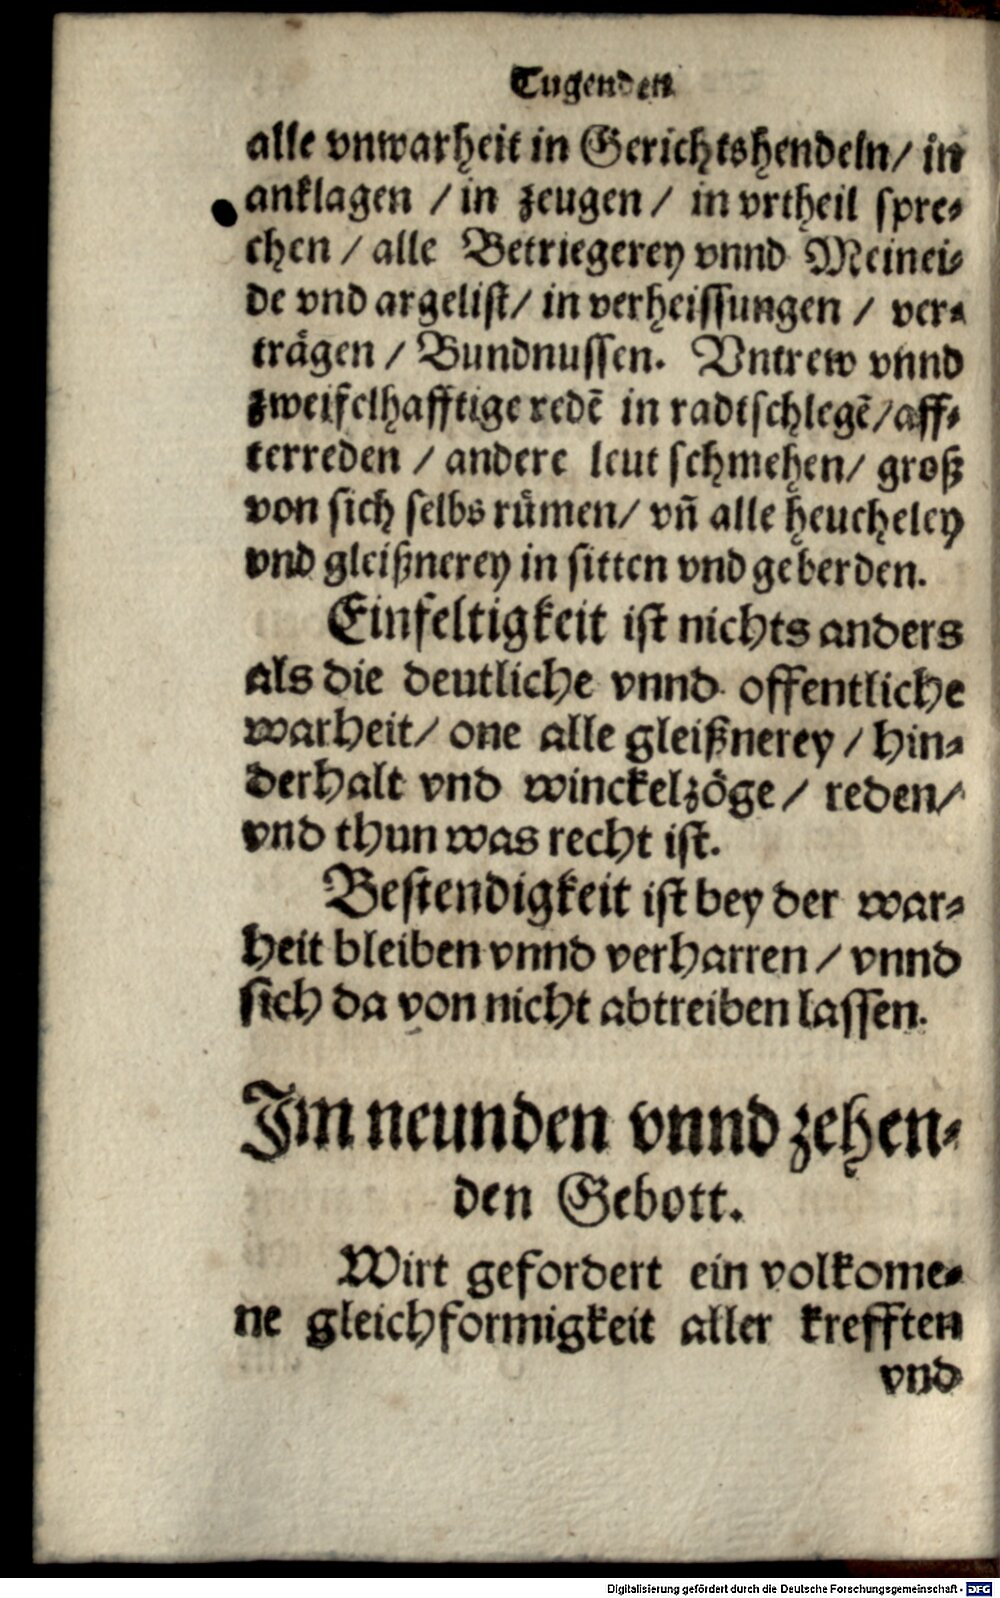 Tugenden
alle vnwarheit in Gerichtshendeln/ in
anklagen / in zeugen / in vrtheil spre⸗
chen / alle Betriegerey vnnd Meinei⸗
de vnd argelist/ in verheissungen / ver⸗
trågen / Bundnussen. Vntrew vnnd
zweifelhafftige redē in radtschlegē/aff⸗
terreden / andere leut schmehen/ groß
von sich selbs růmen/ vñ alle heucheley
vnd gleißnerey in sitten vnd geberden.
Einfeltigkeit ist nichts anders
als die deutliche vnnd offentliche
warheit/ one alle gleißnerey / hin⸗
derhalt vnd winckelzöge / reden/
vnd thun was recht ist.
Bestendigkeit ist bey der war⸗
heit bleiben vnnd verharren / vnnd
sich da von nicht abtreiben lassen.
Im neunden vnnd zehen⸗
den Gebott.
Wirt gefordert ein volkome⸗
ne gleichformigkeit aller krefften
vnd
Digitalisierung gefördert durch die Deutsche Forschungsgemeinschaft - DFG